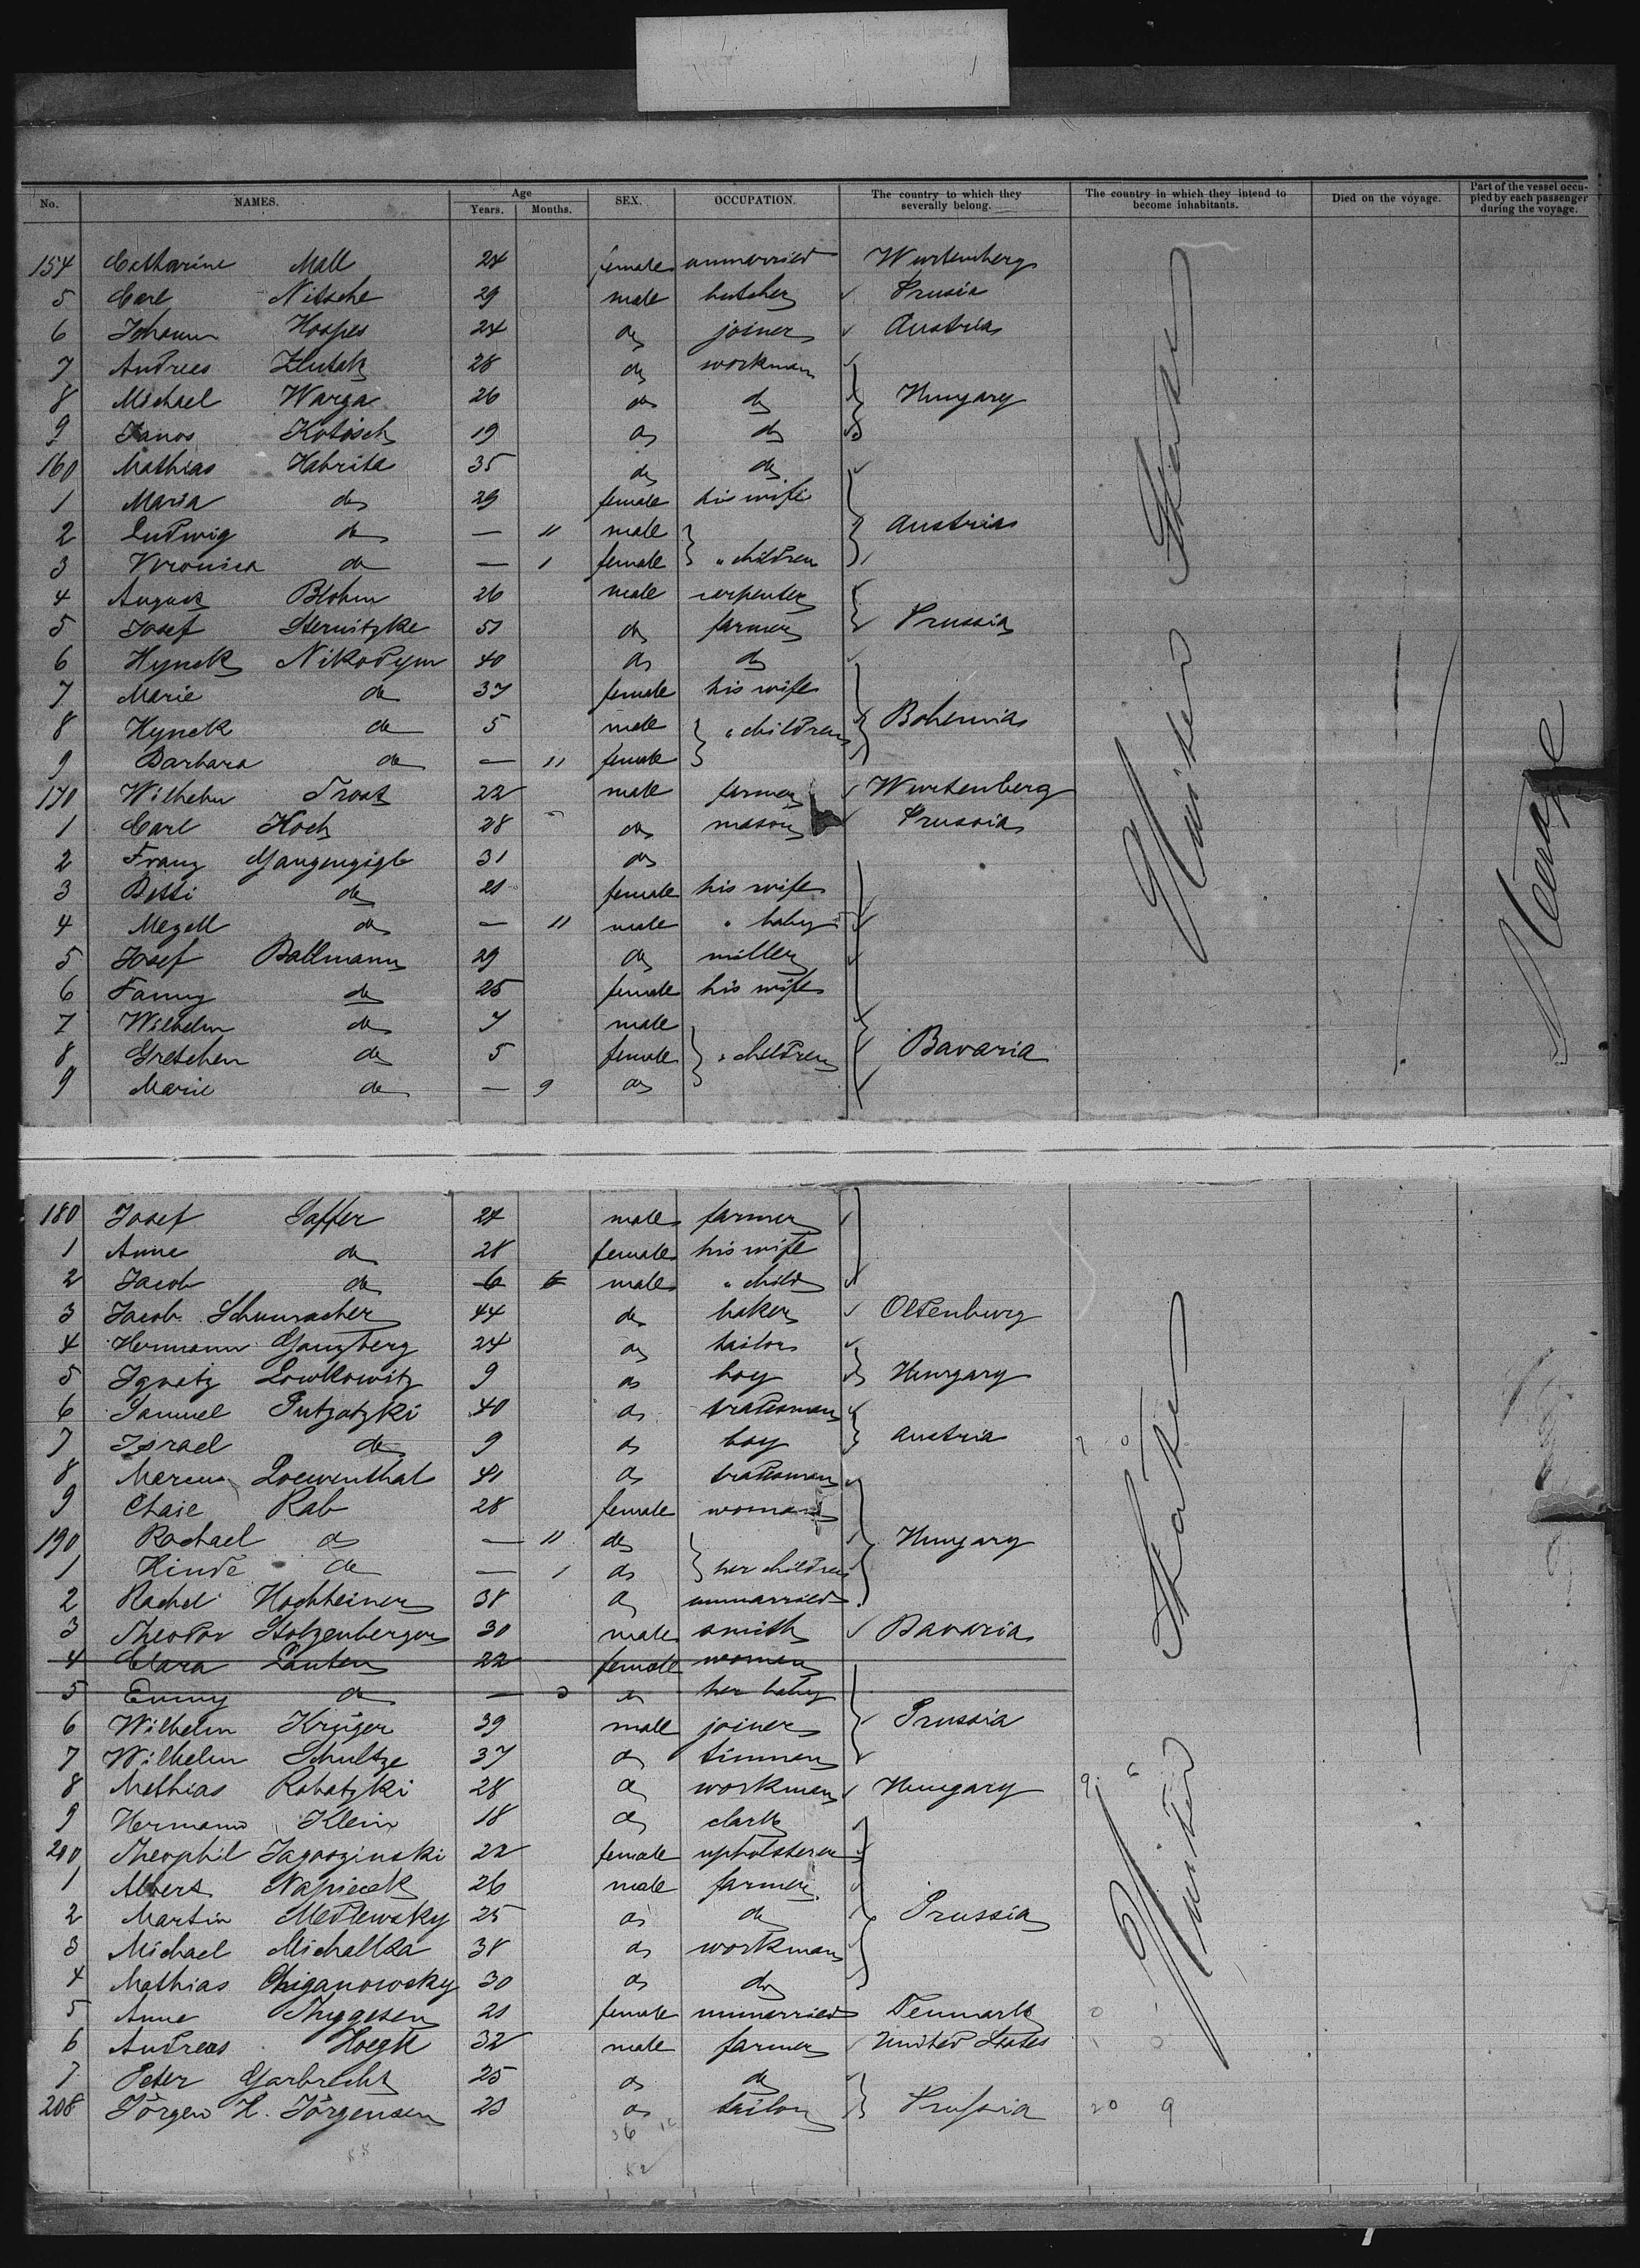 No. NAMES. Age Years. Months. SEX. OCCUPATION. The country to which they severally belong. The country in which they intend to become inhabitants. Died on the voyage. Part of the vessel occupied by each passenger during the voyage.
154 Catharine Mall 24 female unmarried Wurtemberg
5 Carl Nitsche 29 male butcher Prusia
6 Johann Hospes 24 do joiner Austria
7 Andrees 28 do workman
8 Michael Warga 26 do do Hungary
9 Janos Kotosch 19 do do
160 Mathias Habrita 35 do do
1 Maria do 29 female his wife
2 Ludwig do — 11 male Austria
3 Veronica do — 1 female " children
4 August Blohm 26 male carpenter
5 Josef Sternitzke 51 do farmer Prussia
6 Hynek Nikodym 40 do do
7 Marie do 37 female his wife
8 Hynek do 5 male " children Bohemia
9 Barbara do — 11 female
170 Wilhelm Trost 22 male farmer Wurtenberg
1 Carl Koch 28 do mason Prussia
2 Franz Gangengigl 31 do
3 Betti do 21 female his wife
4 do — 11 male " baby
5 Josef Ballmann 29 do miller
6 Fanny do 25 female his wife
7 Wilhelm do 7 male
8 Gretchen do 5 female " children Bavaria
9 Marie do — 9 do
United States
180 Josef Saffer 24 male farmer
1 Anne do 28 female his wife
2 Jacob do 6 6 male " child
3 Jacob Schumacher 44 do baker Oldenburg
4 Hermann Ganzberg 24 do tailor
5 Ignatz Lowkowitz 9 do boy Hungary
6 Samuel Putzatzki 40 do tradesman
7 Israel do 9 do boy Austria
8 Marcus Loewenthal 41 do tradesman
9 Chaie Rab 28 female woman
190 Rachael do — 11 do Hungary
1 Hinde do — 1 do her children
2 Rachel Hochheiner 38 do unmarried
3 Theodor Stolzenberger 30 male smith Bavaria
4 Clara Lauten 22 female woman
5 Emmy do — 3 do her baby
6 Wilhelm Krüger 39 male joiner Prussia
7 Wilhelm Schultze 37 do tinman
8 Mathias Rabatzki 28 do workman Hungary
9 Hermann Klein 18 do clark
200 Theophil Jagorzinski 22 female upholsterer
1 Albert Napierek 26 male farmer
2 Martin Medlewsky 25 do do Prussia
3 Michael Michalka 38 do workman
4 Mathias Chiganowsky 30 do do
5 Anne Thyggesen 21 female unmarried Denmark
6 Andreas Hoegh 32 male farmer United States
7 Peter Garbrecht 25 do do
208 Jörgen H. Jörgensen 23 do tailor Prussia
United States